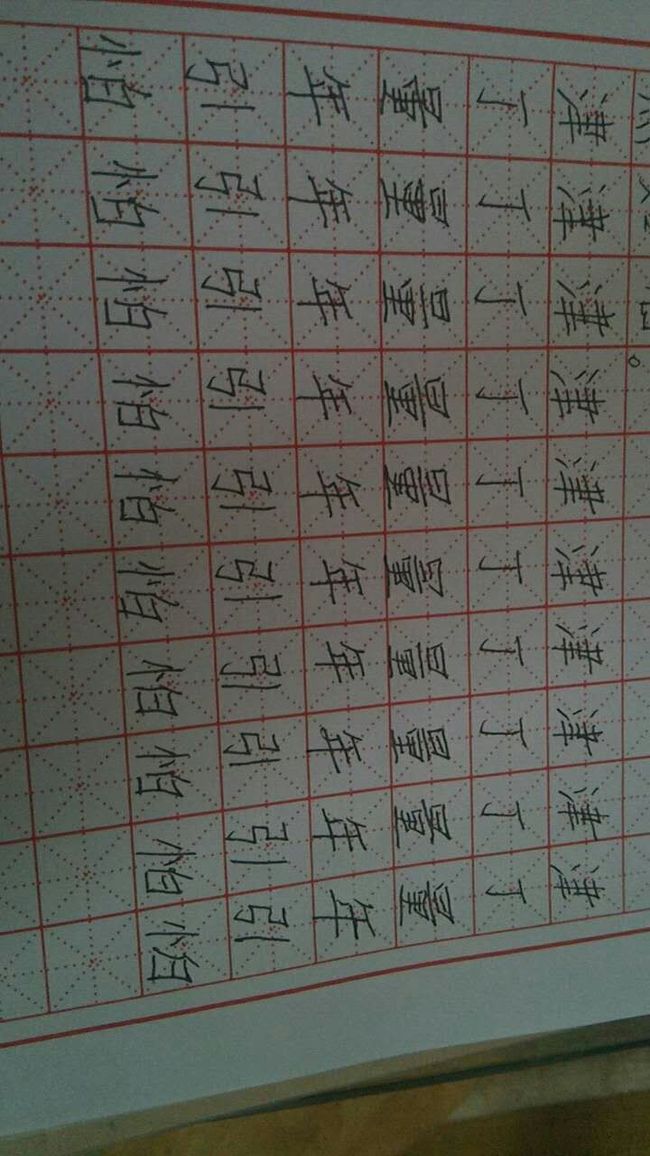 。
津津津津津津津津津津
丁丁丁丁丁丁丁丁丁丁
量量量量量量量量量量
年年年年年年年年年年
引引引引引引引引引引
怕怕怕怕怕怕怕怕怕怕